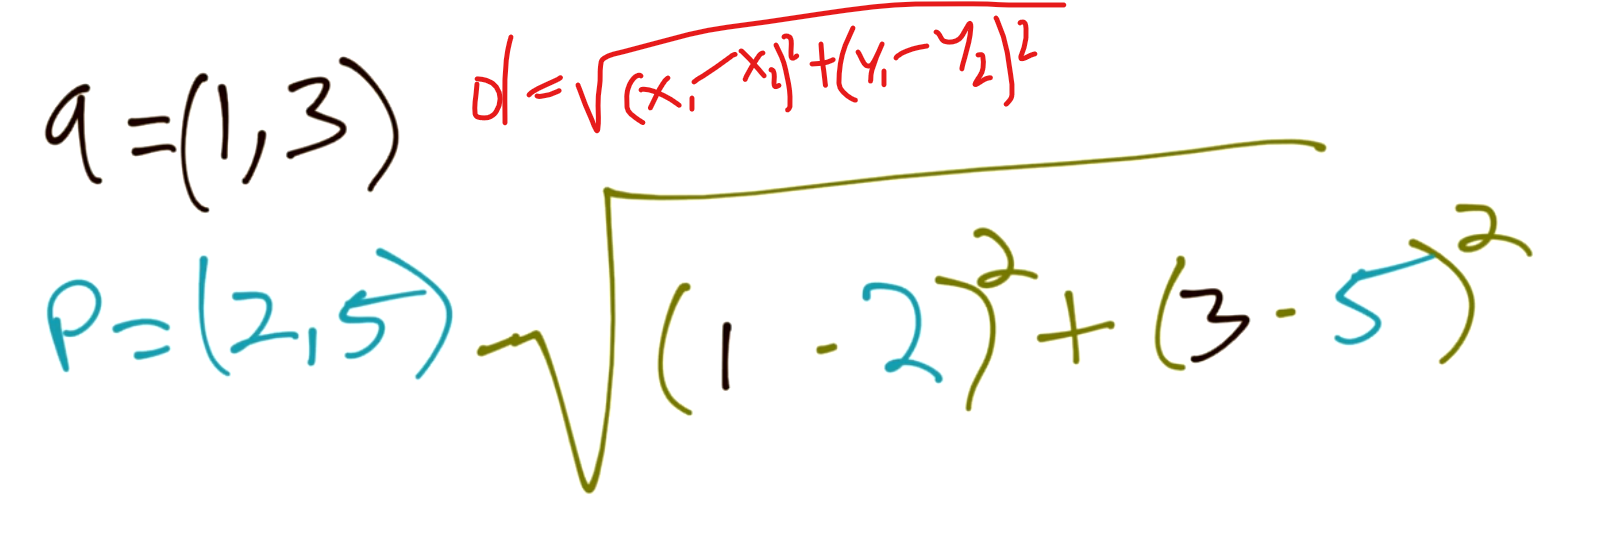 q = (1, 3)
d = √(x₁ - x₂)² + (y₁ - y₂)²
p = (2, 5)
√(1 - 2)² + (3 - 5)²